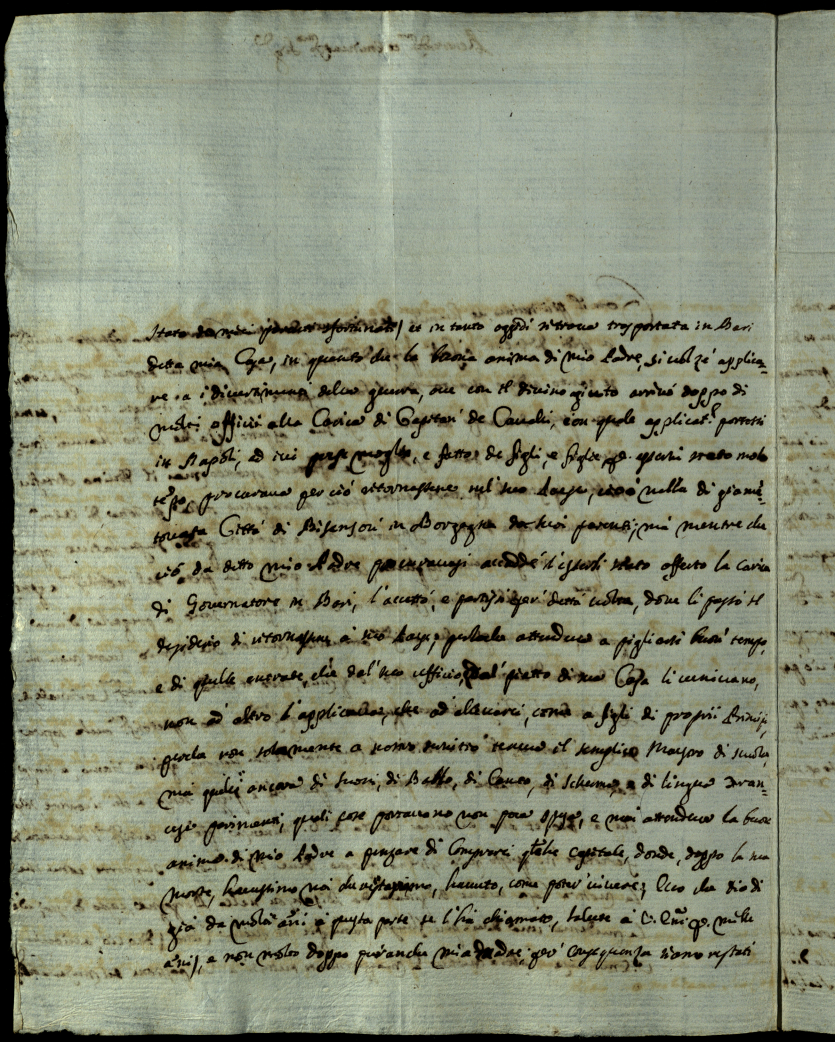 stato da miei parenti infortunati) et in tanto oggidì ritrova trasportata in Bari
detta mia Casa, in quanto che la buona anima di mio Padre, si volze applica=
re a i divertimenti della guerra, ove con il divino agiuto arrivò doppo di
molti officii alla Carica di Capitan' de Cavalli, con quale applicat.e portossi
in Napoli, et ivi prese moglie, e fatto de figli, e figlie, p. essersi stato molto
tempo, procurava per ciò ritornassene nel suo Paese, cioè nella di giamè
Città di Bisanson' in Borgogna da suoi parenti; mà mentre che
ciò da detto mio Padre procuravasi accadde d'esserli stato offerto la carica
di Governatore in Bari, l'accettò, e portossi per detta volta, dove li passò il
desiderio di ritornassene à suo Paese, perloche attendeva a pigliarsi buon tempo,
e di quelle entrate, che dal suo ufficio, e dal piatto di sua Casa li venivano,
non ad altro l'applicava, che ad allevarci, come a figli di proprii Principi,
perche non solamente a nostro servitio teneva il semplice Mastro di scuola,
mà quelli ancora di Suoni, di Ballo, di Canto, di Scherma, e di lingua Fran=
cese parimenti, quali cose portavano non poca spesa, e mai attendeva la buona
anima di mio Padre a pensare di Comprarci qualche capitale, donde, doppo la sua
morte, havessimo noi havuto, come poter vivere; Ecco che dio di
già da molti anni à questa parte se l'hà chiamato, salute à V. p. mille
anni), e non molto doppo pur'anche mia Madre, per consequenza siamo restati